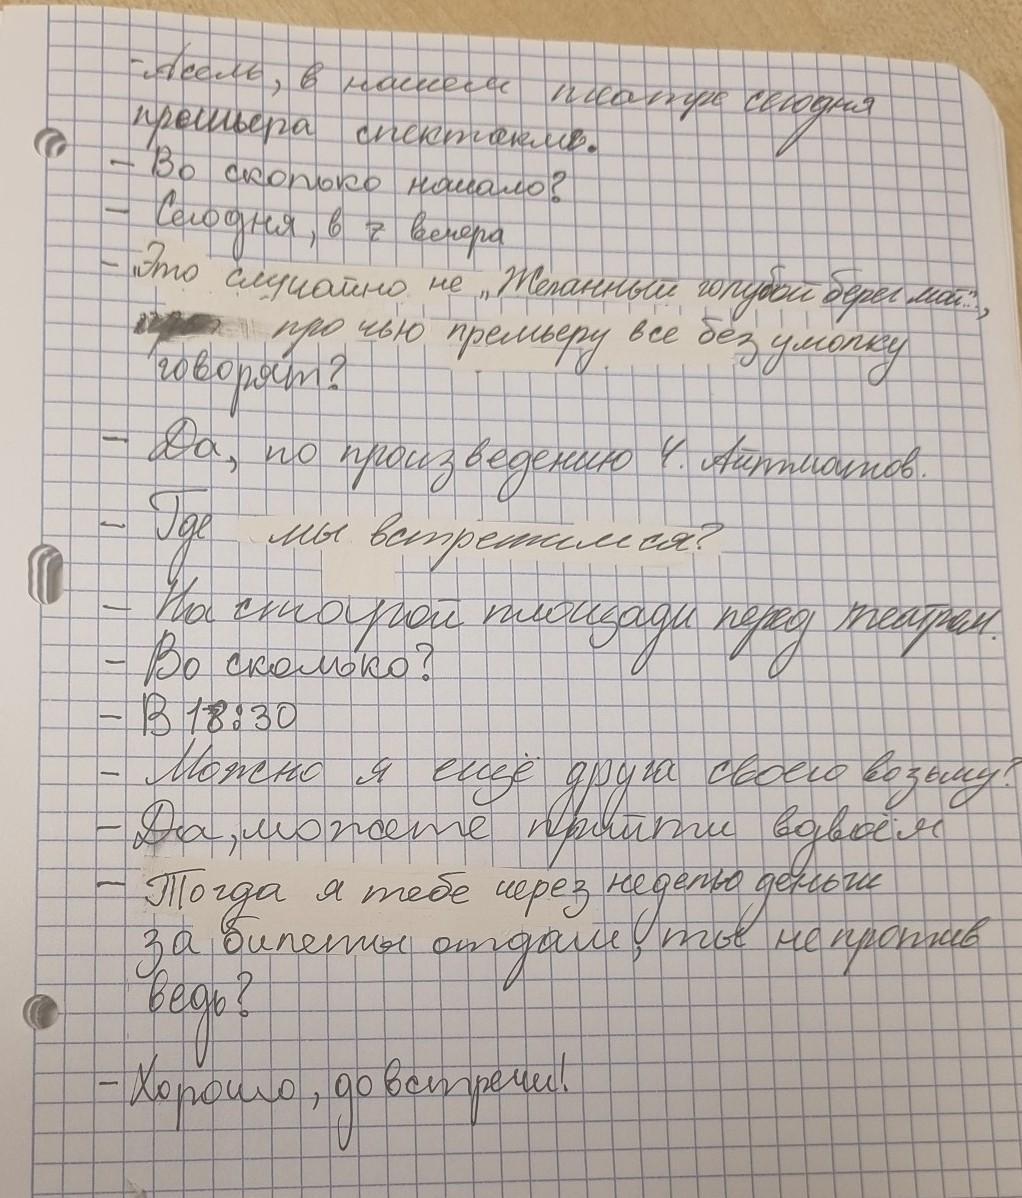 - Асель, в нашем театре сегодня
премьера спектакля.
- Во сколько начало?
- Сегодня, в 7 вечера
- Это случайно не „Желанный голубой берег мой",
про чью премьеру все без умолку
говорят?
- Да, по произведению Ч. Айтматов.
- Где мы встретимся?
- На старой площади перед театром.
- Во сколько?
- В 18:30
- Можно я ещё друга своего возьму?
- Да, можете прийти вдвоём
- Тогда я тебе через неделю деньги
за билеты отдам, ты не против
ведь?
- Хорошо, до встречи!